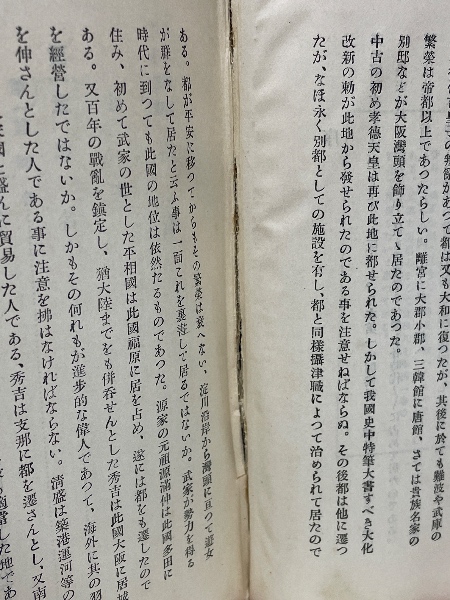 叛亂があつて都は又も大和に復つたが、其後に於ても難波や武庫の
繁榮は帝都以上であつたらしい。離宮に大郡小郡、三韓館に唐館、さては貴族名家の
別邸などが大阪灣頭を飾り立てゝ居たのであつた。
中古の初め孝德天皇は再び此地に都せられた。しかして我國史中特筆大書すべき大化
改新の勅が此地から發せられたのである事を注意せねばならぬ。その後都は他に遷つ
たが、なほ永く別都としての施設を有し、都と同樣攝津職によつて治められて居たので
ある。都が平安に移つてからもその繁榮は衰へない、淀川沿岸から灣頭に亘つて遊女
が群をなして居たと云ふ事は一面これを裏書して居るではないか。武家が勢力を得る
時代に到つても此國の地位は依然たるものであつた。源家の元祖源滿仲は此國多田に
住み、初めて武家の世とした平相國は此國福原に居を占め、遂には都をも遷したので
ある。又百年の戰亂を鎭定し、猶大陸までをも併呑せんとした秀吉は此國大阪に居城
を經營したではないか。しかもその何れもが進步的な偉人であつて、海外に其の羽
を伸さんとした人である事に注意を拂はなければならない。淸盛は築港運河等の
盛んに貿易した人である、秀吉は支那に都を遷さんとし、又南
適當した地であ